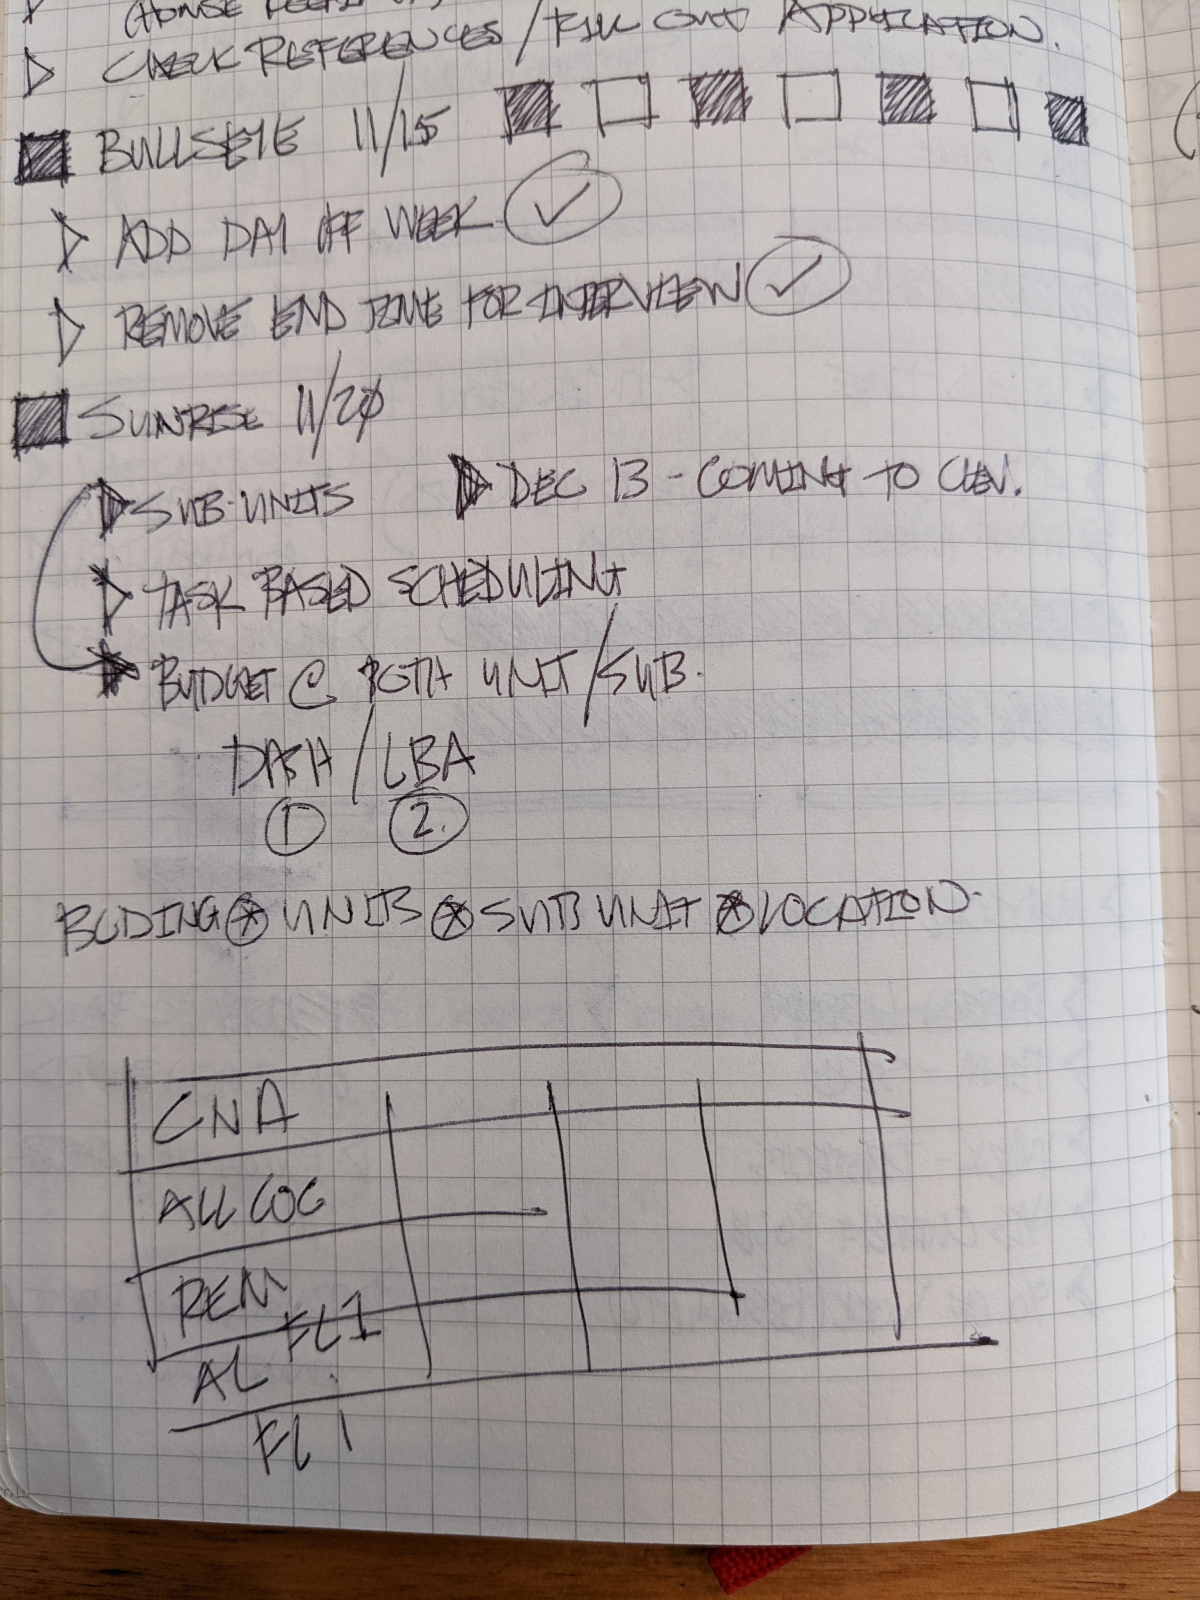 CHECK REFERENCES / FILL OUT APPLICATION.
BULLSEYE 11/15
ADD DAY OFF WEEK
REMOVE END TIME FOR INTERVIEW
SUNRISE 11/20
SUB-UNITS DEC 13 - COMING TO CLEV.
TASK BASED SCHEDULING
BUDGET @ BOTH UNIT / SUB.
DASH / LBA
1 2.
BLDING UNITS SUB UNIT LOCATION
CNA
ALL LOC
REM
FL1
AL
FL 1